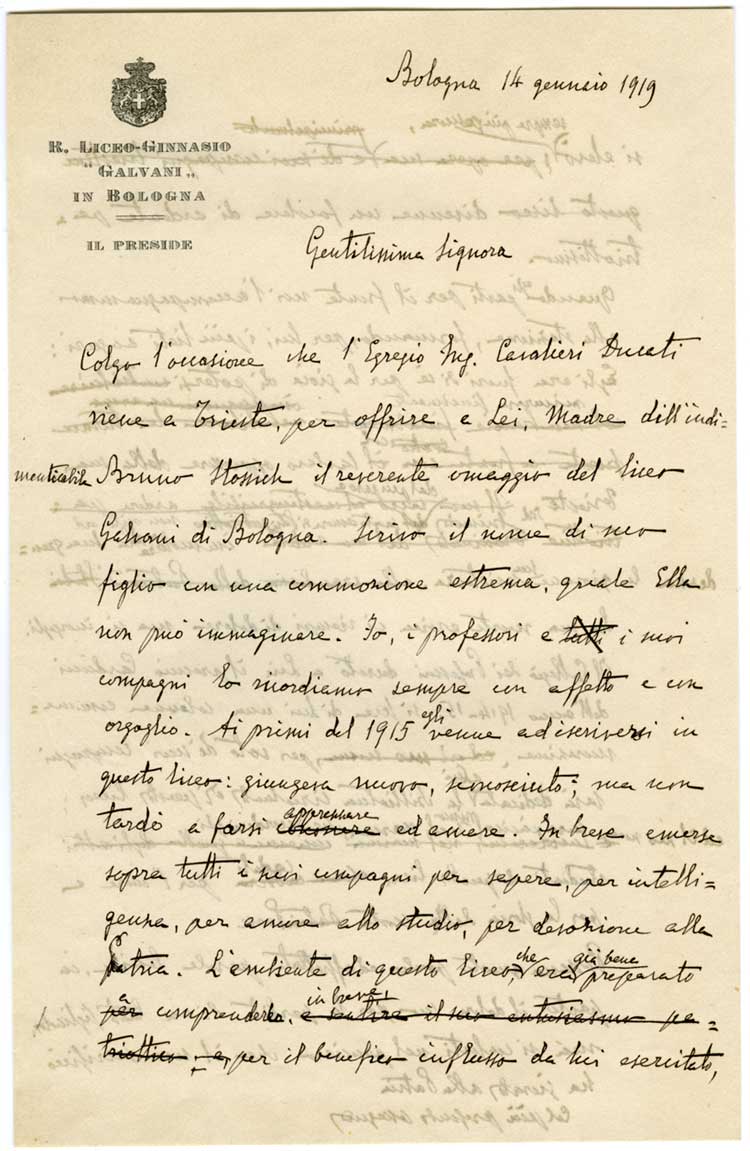 Bologna 14 gennaio 1919
R. LICEO-GINNASIO
"GALVANI„
IN BOLOGNA
IL PRESIDE
Gentilissima Signora
Colgo l'occasione che l'Egregio Ing. Cavalieri Ducati
viene a Trieste, per offrire a Lei, Madre dell'indi=
menticabile Bruno Stossich il reverente omaggio del liceo
Galvani di Bologna. Scrivo il nome di suo
figlio con una commozione estrema, quale Ella
non può immaginare. Io, i professori e tutti i suoi
compagni lo ricordiamo sempre con affetto e con
orgoglio. Ai primi del 1915 egli venne ad iscriversi in
questo liceo: giungeva nuovo, sconosciuto; ma non
tardò a farsi conoscere apprezzare ed amare. In breve emerse
sopra tutti i suoi compagni per sapere, per intelli=
genza, per amore allo studio, per devozione alla
Patria. L'ambiente di questo liceo, che era già bene preparato
a comprenderlo, in breve, e sentire il suo entusiasmo pa=
triottico, e, per il benefico influsso da lui esercitato,